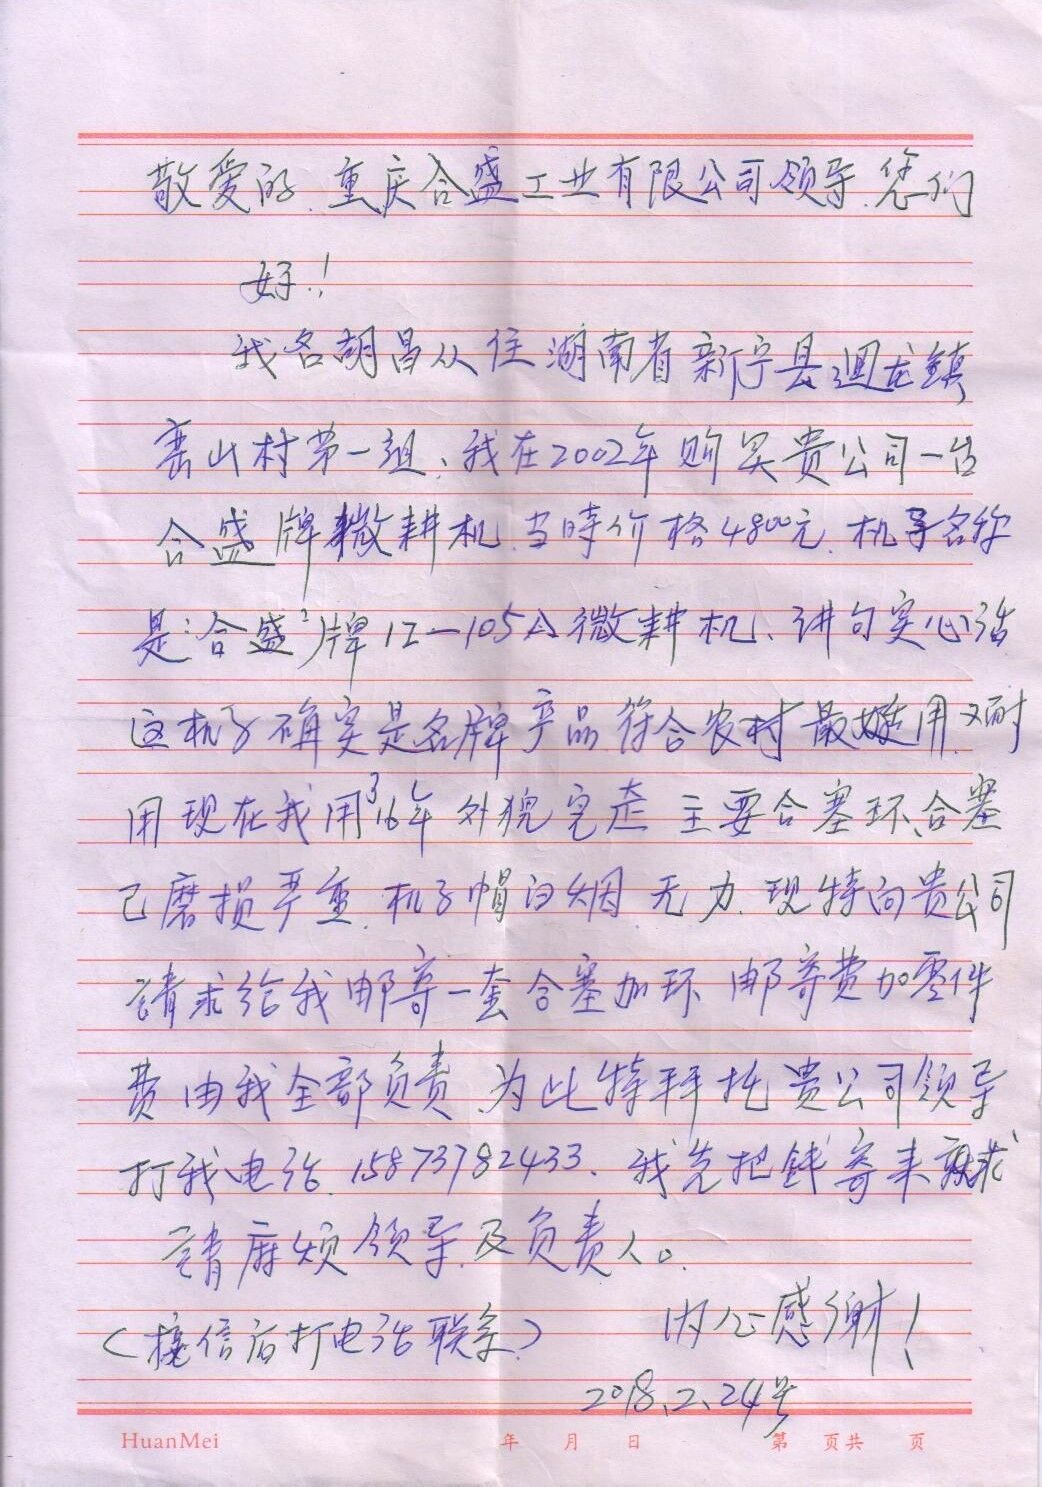 敬爱的.重庆合盛工业有限公司领导.您们
好!
我名胡昌从住湖南省新宁县迴龙镇
山村第一组、我在2002年购买贵公司一台
合盛牌微耕机.当時价格4800元.机子名称
是:合盛牌1Z—105A微耕机、讲句实心话
这机子确实是名牌产品.符合农村最适用.又耐
用现在我用16年外貌完 主要合塞环、合塞
已磨损严重.机子帽白烟.无力.现特向贵公司
請求给我邮寄一套合塞加环.邮寄费加零件
费由我全部负责.为此特拜托贵公司领导
打我电话.15873782433、我先把钱寄来 求
請麻烦领导及负责人。
内心感谢!
(接信后打电话联系)
2018.2.24号
HuanMei 年 月 日 第 页共 页